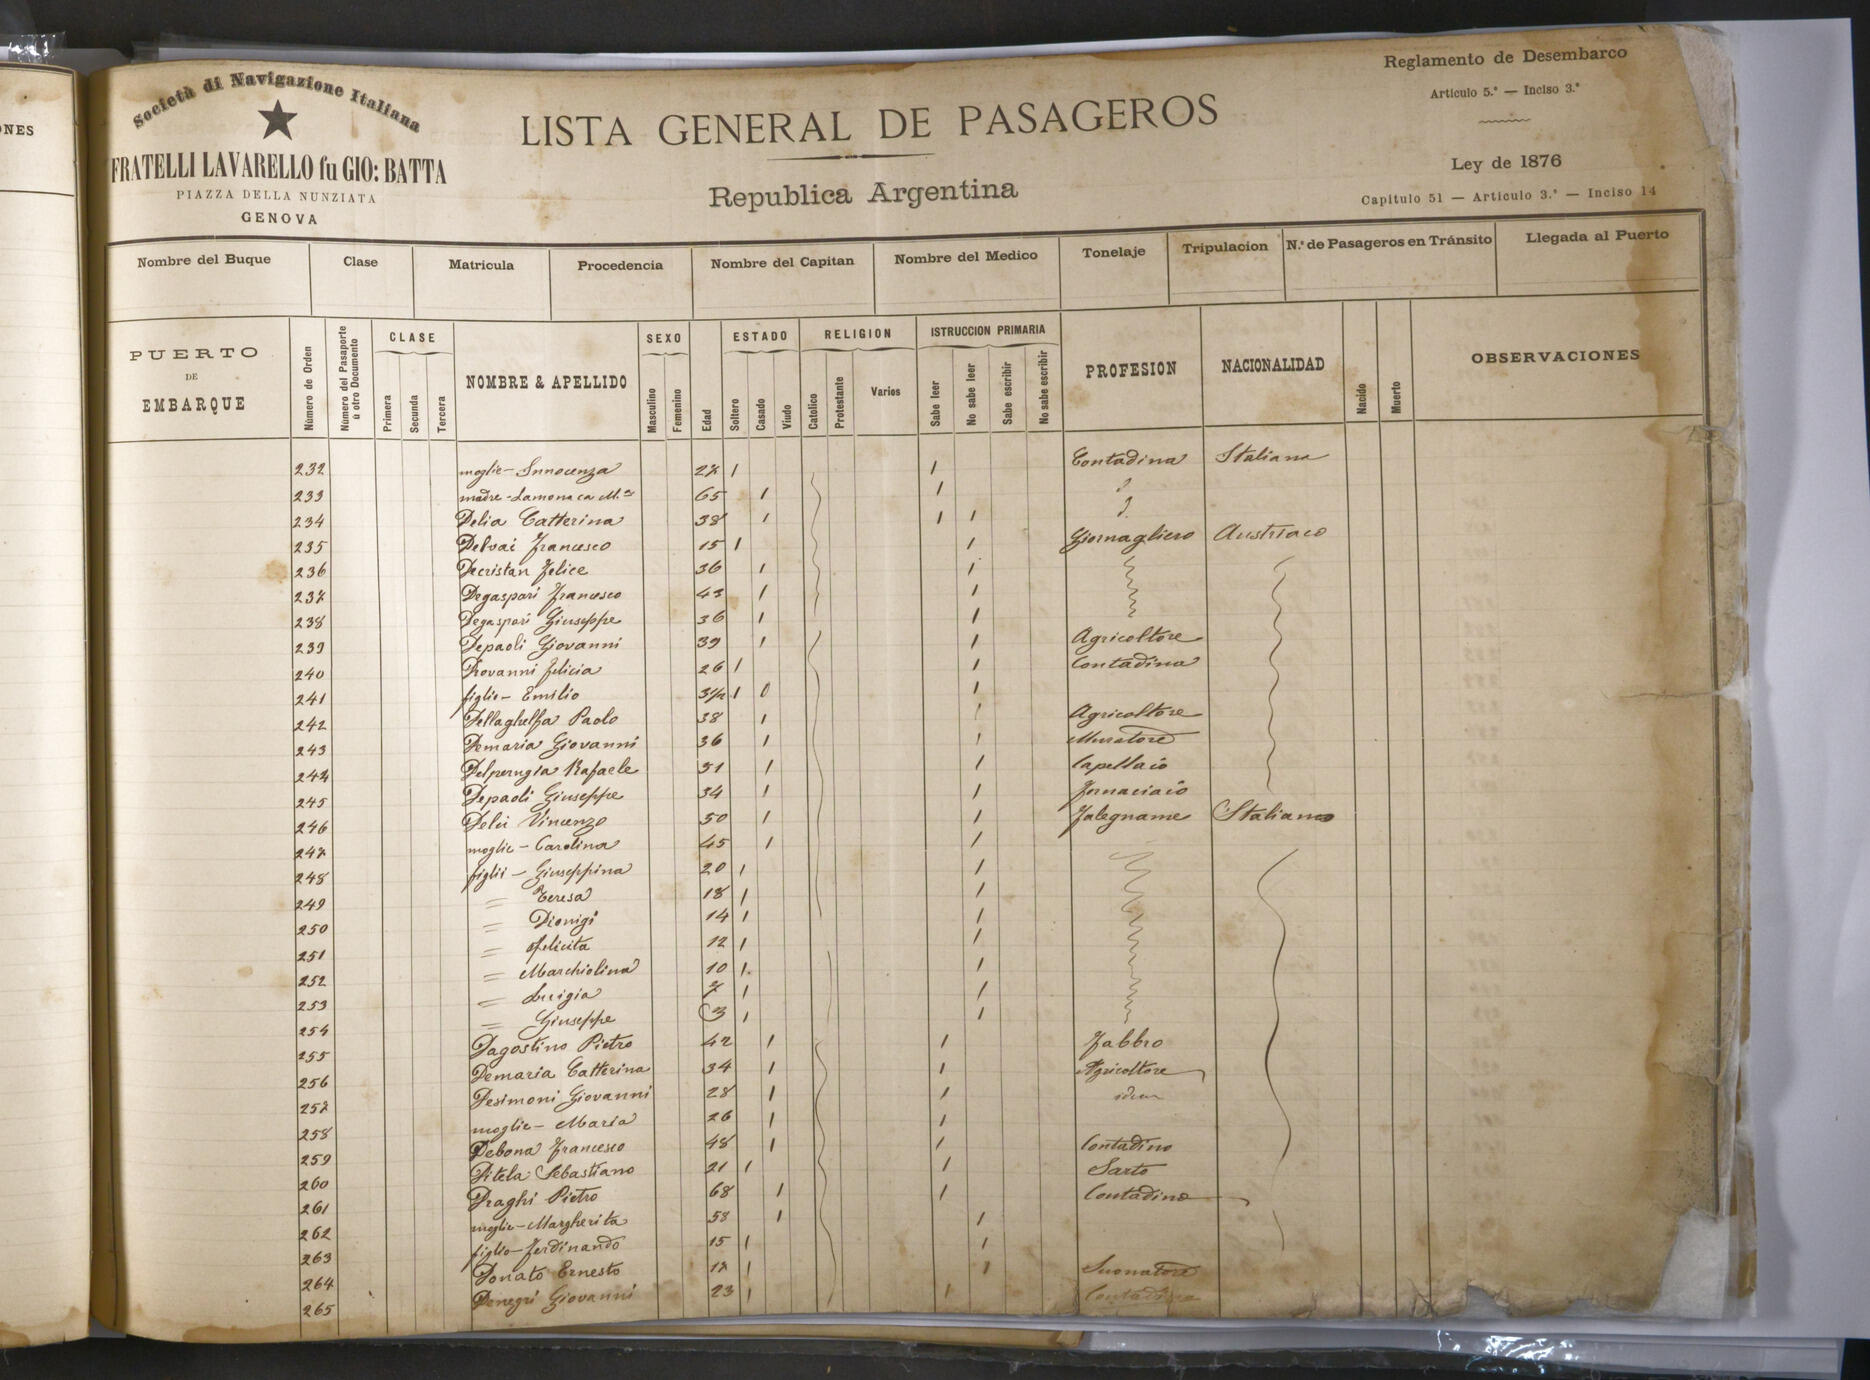 ONES
Società di Navigazione Italiana
FRATELLI LAVARELLO fu GIO: BATTA
PIAZZA DELLA NUNZIATA
GENOVA
LISTA GENERAL DE PASAGEROS
Republica Argentina
Reglamento de Desembarco
Articulo 5.° — Inciso 3.°
Ley de 1876
Capitulo 51 — Articulo 3.° — Inciso 14
Nombre del Buque Clase Matricula Procedencia Nombre del Capitan Nombre del Medico Tonelaje Tripulacion N.° de Pasageros en Tránsito Llegada al Puerto
PUERTO DE EMBARQUE Número de Orden Número del Pasaporte ù otro Documento CLASE Primera Secunda Tercera NOMBRE & APELLIDO SEXO Masculino Femenino Edad ESTADO Soltero Casado Viudo RELIGION Catolico Protestante Varios ISTRUCCION PRIMARIA Sabe leer No sabe leer Sabe escribir No sabe escribir PROFESION NACIONALIDAD Nacido Muerto OBSERVACIONES
232 moglie - Innocenza 27 1 1 Contadina Italiana
233 madre - Lamonaca M.a 65 1 1
234 Delia Catterina 38 1 1 1
235 Delvai Francesco 15 1 1 Giornagliero Austriaco
236 Decristan Felice 36 1 1
237 Degaspari Francesco 43 1 1
238 Degaspari Giuseppe 36 1 1
239 Depaoli Giovanni 39 1 1 Agricoltore
240 Provanni Felicia 26 1 1 Contadina
241 figlio - Emilio 3 1/2 1 0 1
242 Dellaghelfa Paolo 38 1 1 Agricoltore
243 Demaria Giovanni 36 1 1 Muratore
244 Delperugia Rafaele 31 1 1 Capellaio
245 Depaoli Giuseppe 34 1 1 Fornaciaio
246 Vincenzo 50 1 1 Falegname Italiano
247 moglie - Carolina 45 1 1
248 figlii - Giuseppina 20 1 1
249 = Teresa 18 1 1
250 = Dionigi 14 1 1
251 = Felicita 12 1 1
252 = Marchiolina 10 1 1
253 = Luigia 7 1 1
254 = Giuseppe 3 1 1
255 Dagostino Pietro 42 1 1 Fabbro
256 Demaria Catterina 34 1 1 Agricoltore
257 Desimoni Giovanni 28 1 1 idem
258 moglie - Maria 26 1 1
259 Debona Francesco 48 1 1 Contadino
260 Ditela Sebastiano 21 1 1 Sarto
261 Draghi Pietro 68 1 1 Contadino
262 moglie - Margherita 58 1 1
263 figlio - Ferdinando 15 1 1
264 Donato Ernesto 17 1 1 Suonatore
265 Denegri Giovanni 23 1 1 Contadino